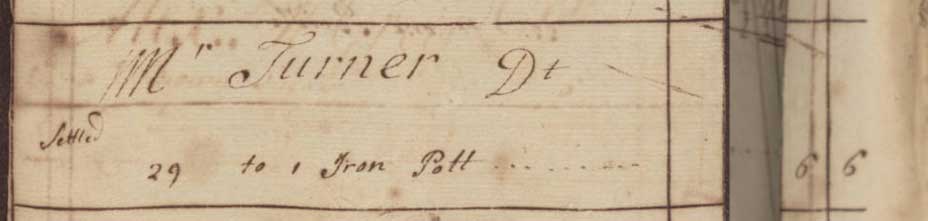 Mr Turner Dt
Settled
29 to 1 Iron Pott ............ 6 6